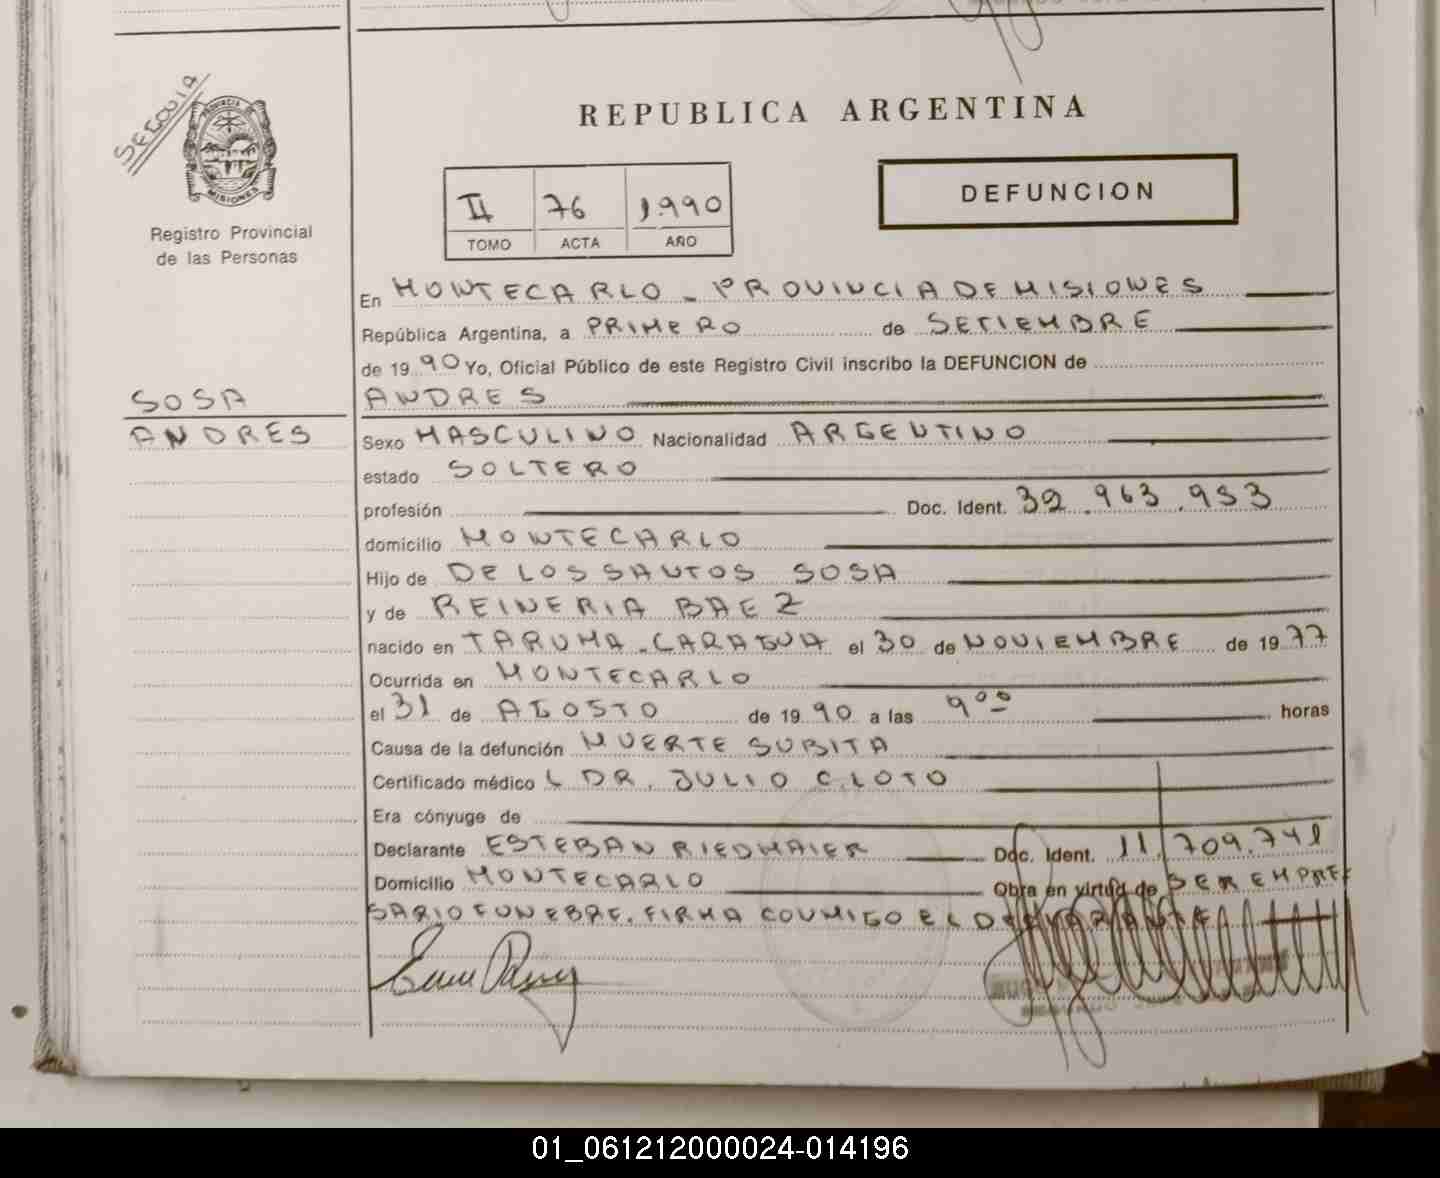 SEGOVIA
PROVINCIA DE
MISIONES
Registro Provincial
de las Personas
REPUBLICA ARGENTINA
II 76 1.990
TOMO ACTA AÑO
DEFUNCION
En MONTECARLO - PROVINCIA DE MISIONES
República Argentina, a PRIMERO de SETIEMBRE
de 19 90 Yo, Oficial Público de este Registro Civil inscribo la DEFUNCION de
SOSA ANDRES
ANDRES Sexo MASCULINO Nacionalidad ARGENTINO
estado SOLTERO
profesión Doc. Ident. 32.963.953
domicilio MONTECARLO
Hijo de DE LOS SANTOS SOSA
y de REINERIA BAEZ
nacido en TARUMA - CARAGUA el 30 de NOVIEMBRE de 19 77
Ocurrida en MONTECARLO
el 31 de AGOSTO de 19 90 a las 9 00 horas
Causa de la defunción MUERTE SUBITA
Certificado médico DR. JULIO C. LOTO
Era cónyuge de
Declarante ESTEBAN RIEDMAIER Doc. Ident. 11.709.741
Domicilio MONTECARLO Obra en virtud de SER EMPRE
SARIO FUNEBRE. FIRMA CONMIGO EL DECLARANTE
01_061212000024-014196